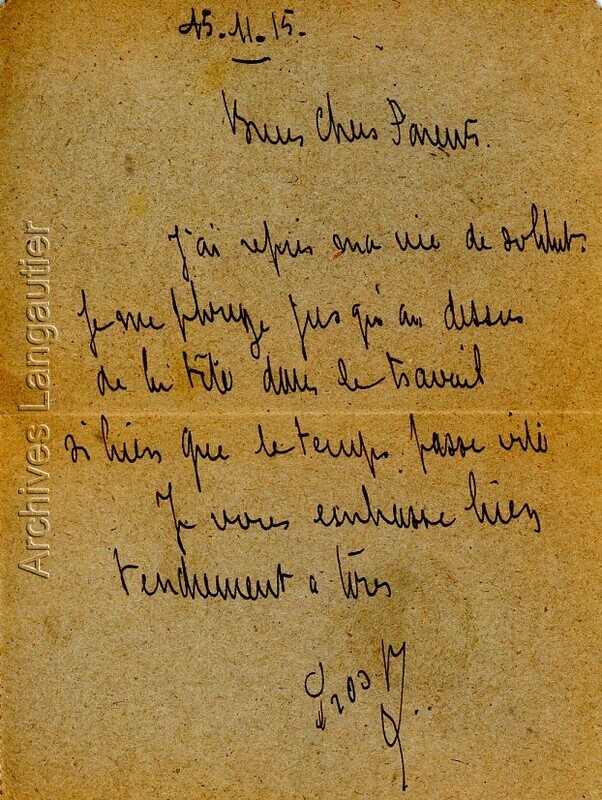 15.11.15.
Bien Chers Parents.
J'ai repris ma vie de soldat.
Je me plonge jusqu'au dessus
de la tête dans le travail
si bien que le temps passe vite
Je vous embrasse bien
tendrement a tous
Archives Langautier